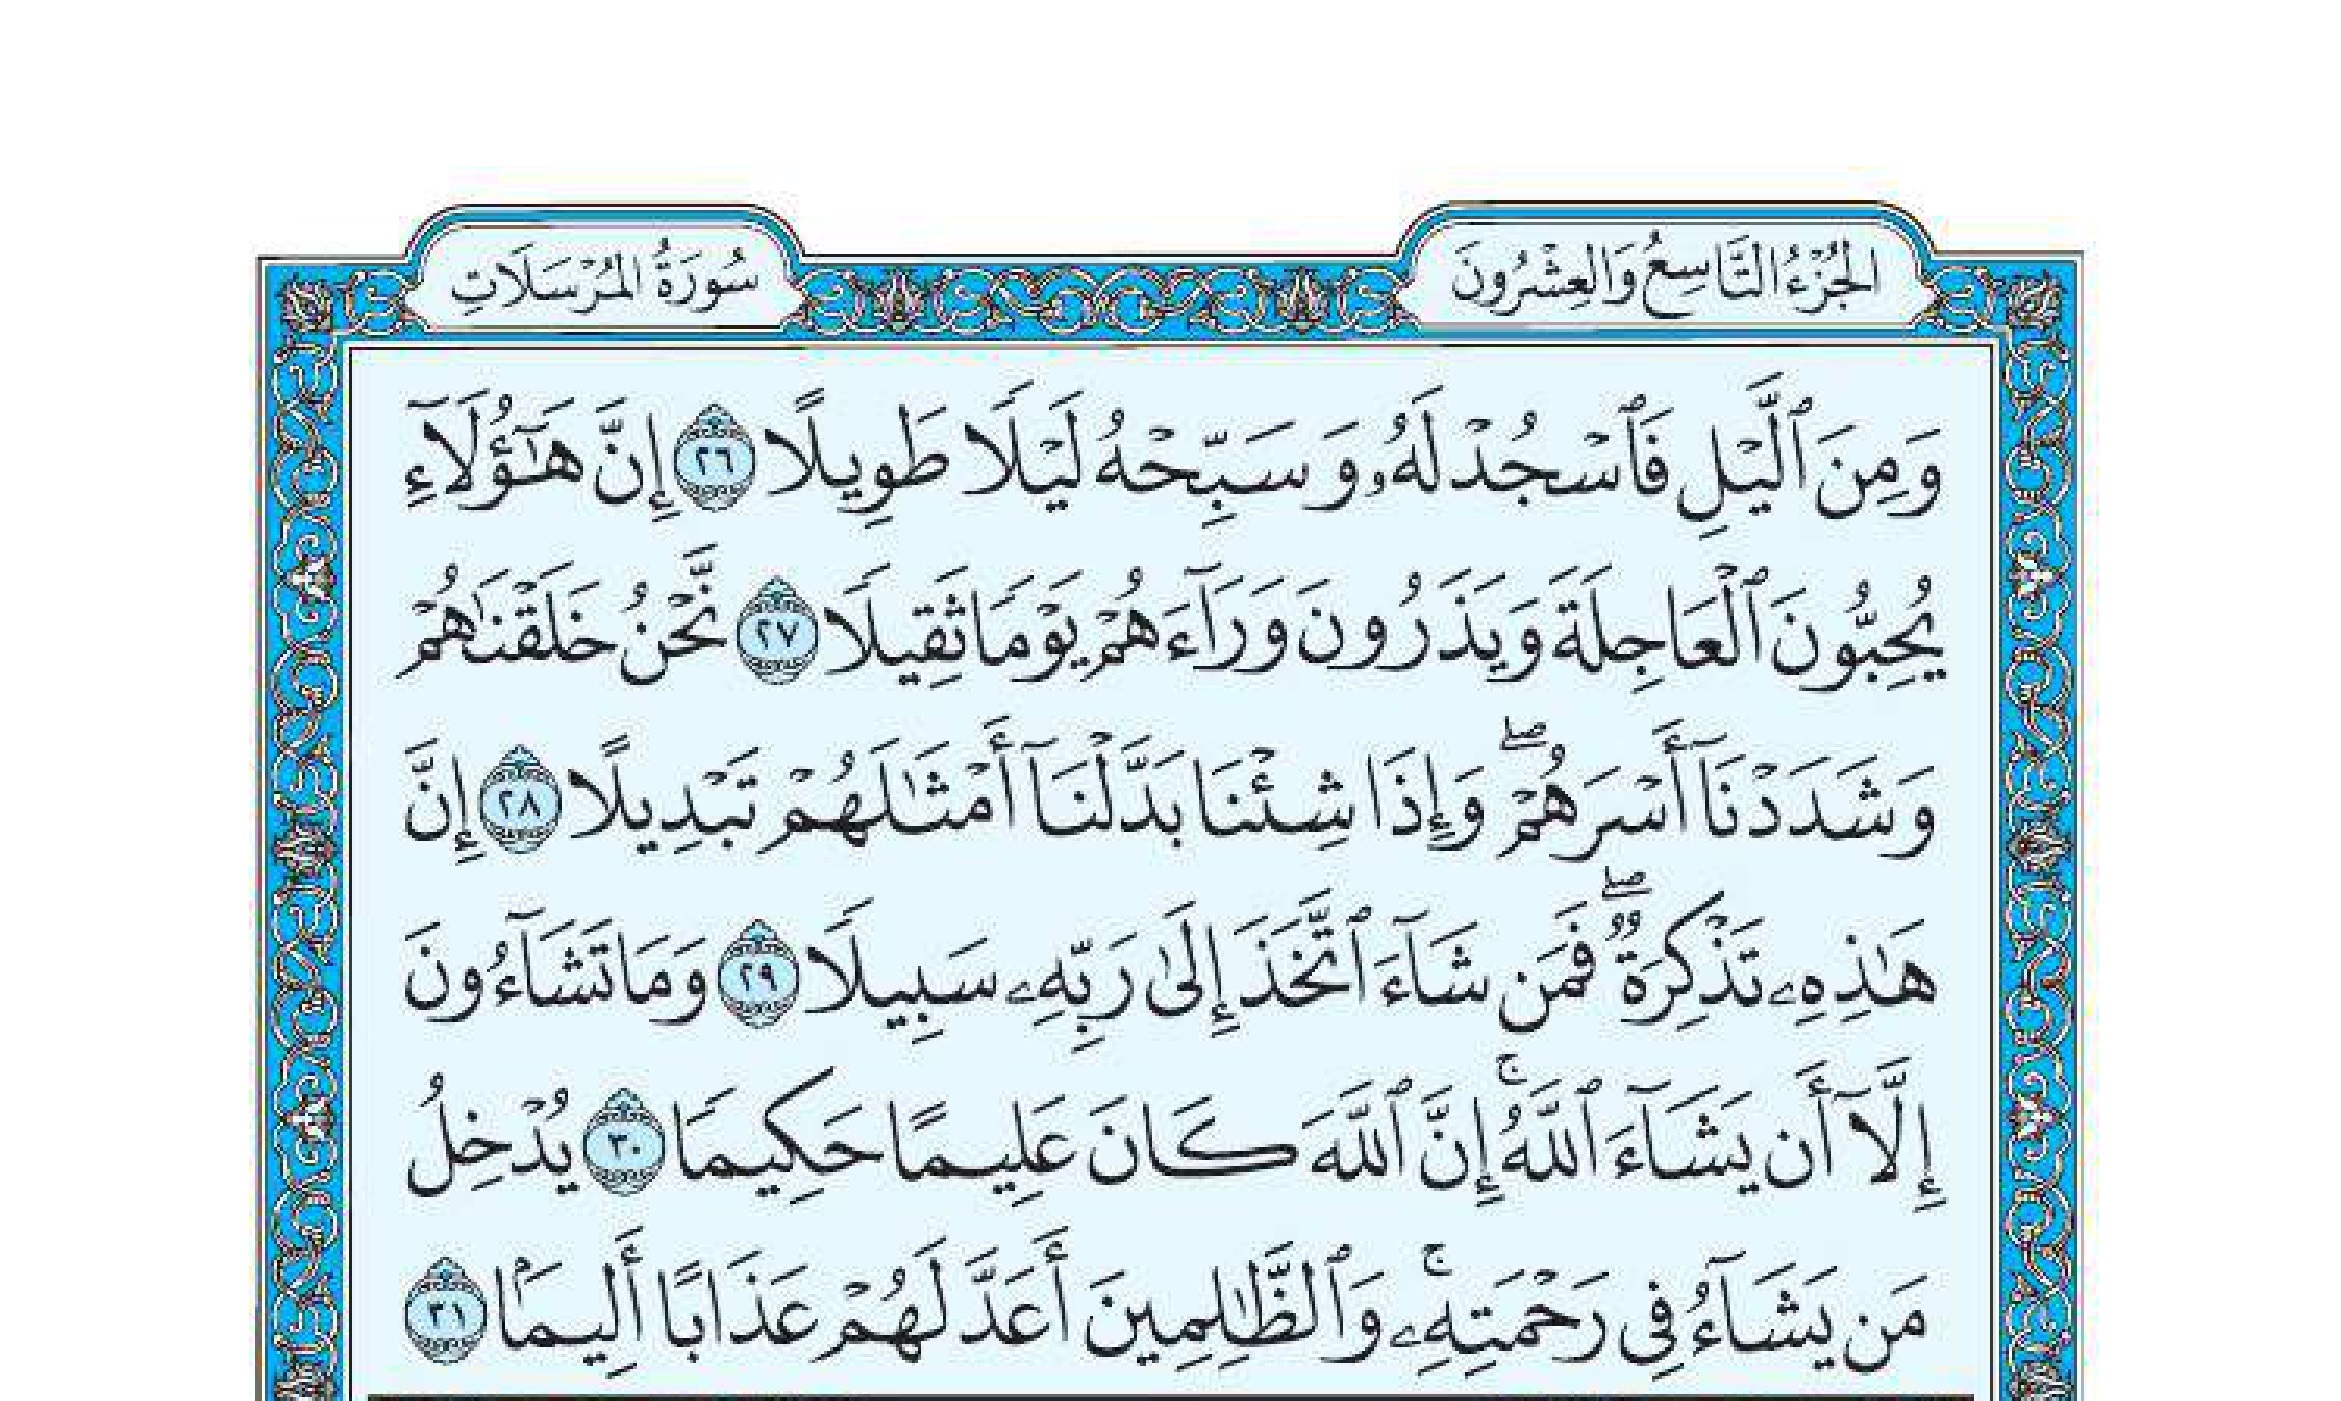 الجُزْءُ التَّاسِعُ وَالعِشْرُونَ
سُورَةُ المُرْسَلَاتِ
وَمِنَ ٱلَّيْلِ فَٱسْجُدْ لَهُۥ وَسَبِّحْهُ لَيْلًا طَوِيلًا ٢٦ إِنَّ هَٰٓؤُلَآءِ
يُحِبُّونَ ٱلْعَاجِلَةَ وَيَذَرُونَ وَرَآءَهُمْ يَوْمًا ثَقِيلًا ٢٧ نَّحْنُ خَلَقْنَٰهُمْ
وَشَدَدْنَآ أَسْرَهُمْۖ وَإِذَا شِئْنَا بَدَّلْنَآ أَمْثَٰلَهُمْ تَبْدِيلًا ٢٨ إِنَّ
هَٰذِهِۦ تَذْكِرَةٌۖ فَمَن شَآءَ ٱتَّخَذَ إِلَىٰ رَبِّهِۦ سَبِيلًا ٢٩ وَمَا تَشَآءُونَ
إِلَّآ أَن يَشَآءَ ٱللَّهُۚ إِنَّ ٱللَّهَ كَانَ عَلِيمًا حَكِيمًا ٣٠ يُدْخِلُ
مَن يَشَآءُ فِى رَحْمَتِهِۦۚ وَٱلظَّٰلِمِينَ أَعَدَّ لَهُمْ عَذَابًا أَلِيمًۢا ٣١